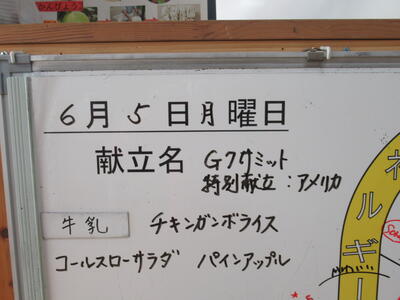 かんぴょう
6月5日月曜日
献立名 G7サミット
特別献立：アメリカ
牛乳 チキンガンボライス
コールスローサラダ パインアップル
ネルギー